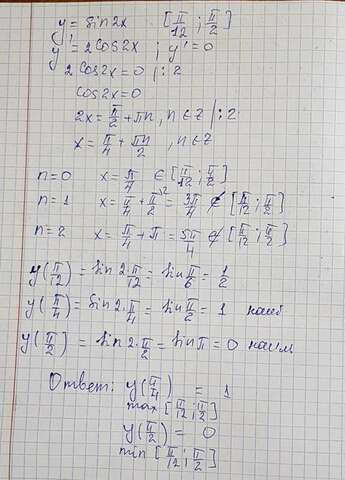 y = sin2x [π/12 ; π/2]
y' = 2cos2x ; y' = 0
2cos2x = 0 |: 2
cos2x = 0
2x = π/2 + πn, n ∈ Z |: 2
x = π/4 + πn/2 , n ∈ Z
n = 0 x = π/4 ∈ [π/12 ; π/2]
n = 1 x = π/4 + π/2 = 3π/4 ∉ [π/12 ; π/2]
n = 2 x = π/4 + π = 5π/4 ∉ [π/12 ; π/2]
y(π/12) = sin 2·π/12 = sin π/6 = 1/2
y(π/4) = sin 2·π/4 = sin π/2 = 1 наиб
y(π/2) = sin 2·π/2 = sin π = 0 наим
Ответ: y(π/4) = 1
max [π/12 ; π/2]
y(π/2) = 0
min [π/12 ; π/2]